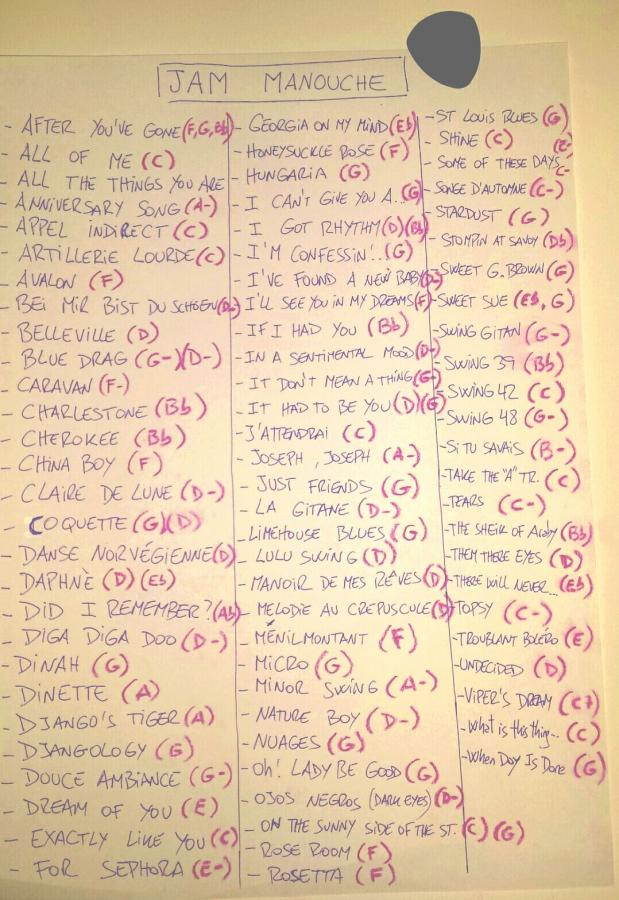 JAM MANOUCHE
- AFTER YOU'VE GONE (F,G,Bb)
- ALL OF ME (C)
- ALL THE THINGS YOU ARE
- ANNIVERSARY SONG (A-)
- APPEL INDIRECT (C)
- ARTILLERIE LOURDE (C)
- AVALON (F)
- BEI MIR BIST DU SCHOEN (D-)
- BELLEVILLE (D)
- BLUE DRAG (G-)(D-)
- CARAVAN (F-)
- CHARLESTONE (Bb)
- CHEROKEE (Bb)
- CHINA BOY (F)
- CLAIRE DE LUNE (D-)
- COQUETTE (G)(D)
- DANSE NORVÉGIENNE (D)
- DAPHNÈ (D) (Eb)
- DID I REMEMBER? (Ab)
- DIGA DIGA DOO (D-)
- DINAH (G)
- DINETTE (A)
- DJANGO'S TIGER (A)
- DJANGOLOGY (G)
- DOUCE AMBIANCE (G-)
- DREAM OF YOU (E)
- EXACTLY LIKE YOU (C)
- FOR SEPHORA (E-)
- GEORGIA ON MY MIND (Eb)
- HONEYSUCKLE ROSE (F)
- HUNGARIA (G)
- I CAN'T GIVE YOU A... (G)
- I GOT RHYTHM (D)(Bb)
- I'M CONFESSIN'.. (G)
- I'VE FOUND A NEW BABY (D-)
- I'LL SEE YOU IN MY DREAMS (F)
- IF I HAD YOU (Bb)
- IN A SENTIMENTAL MOOD (D-)
- IT DON'T MEAN A THING (G-)
- IT HAD TO BE YOU (D)(G)
- J'ATTENDRAI (C)
- JOSEPH, JOSEPH (A-)
- JUST FRIENDS (G)
- LA GITANE (D-)
- LIMEHOUSE BLUES (G)
- LULU SWING (D)
- MANOIR DE MES RÊVES (D)
- MELODIE AU CREPUSCULE (D)
- MÉNILMONTANT (F)
- MICRO (G)
- MINOR SWING (A-)
- NATURE BOY (D-)
- NUAGES (G)
- OH! LADY BE GOOD (G)
- OJOS NEGROS (DARK EYES) (D-)
- ON THE SUNNY SIDE OF THE ST. (C) (G)
- ROSE ROOM (F)
- ROSETTA (F)
- ST LOUIS BLUES (G)
- SHINE (C)
- SOME OF THESE DAYS
- SONGE D'AUTOMNE (C-)
- STARDUST (G)
- STOMPIN AT SAVOY (Db)
- SWEET G. BROWN (G)
- SWEET SUE (Eb, G)
- SWING GITAN (G-)
- SWING 39 (Bb)
- SWING 42 (C)
- SWING 48 (G-)
- SI TU SAVAIS (B-)
- TAKE THE "A" TR. (C)
- TEARS (C-)
- THE SHEIK OF Araby (Bb)
- THEM THERE EYES (D)
- THERE WILL NEVER... (Eb)
- TOPSY (C-)
- TROUBLANT BOLÉRO (E)
- UNDECIDED (D)
- VIPER'S DREAM (C7)
- What is this thing... (C)
- When Day Is Done (G)